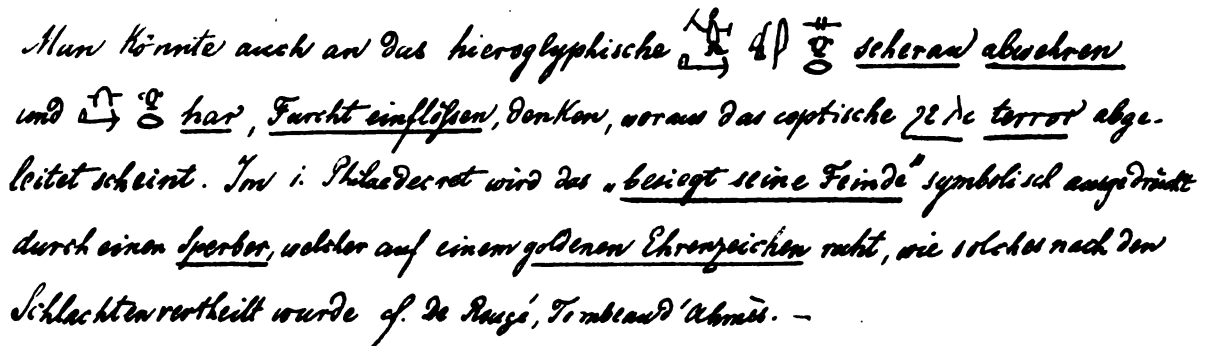 Man könnte auch an das hieroglyphische scherau abwehren
und har, Furcht einflößen, denken, woraus das coptische terror abge-
leitet scheint. Im i. Philaedecret wird das „besiegt seine Feinde" symbolisch ausgedrückt
durch einen Sperber, welcher auf einem goldenen Ehrenzeichen ruht, wie solches nach den
Schlachten vertheilt wurde cf. De Rougé, Tombeau d'Ahmès. —